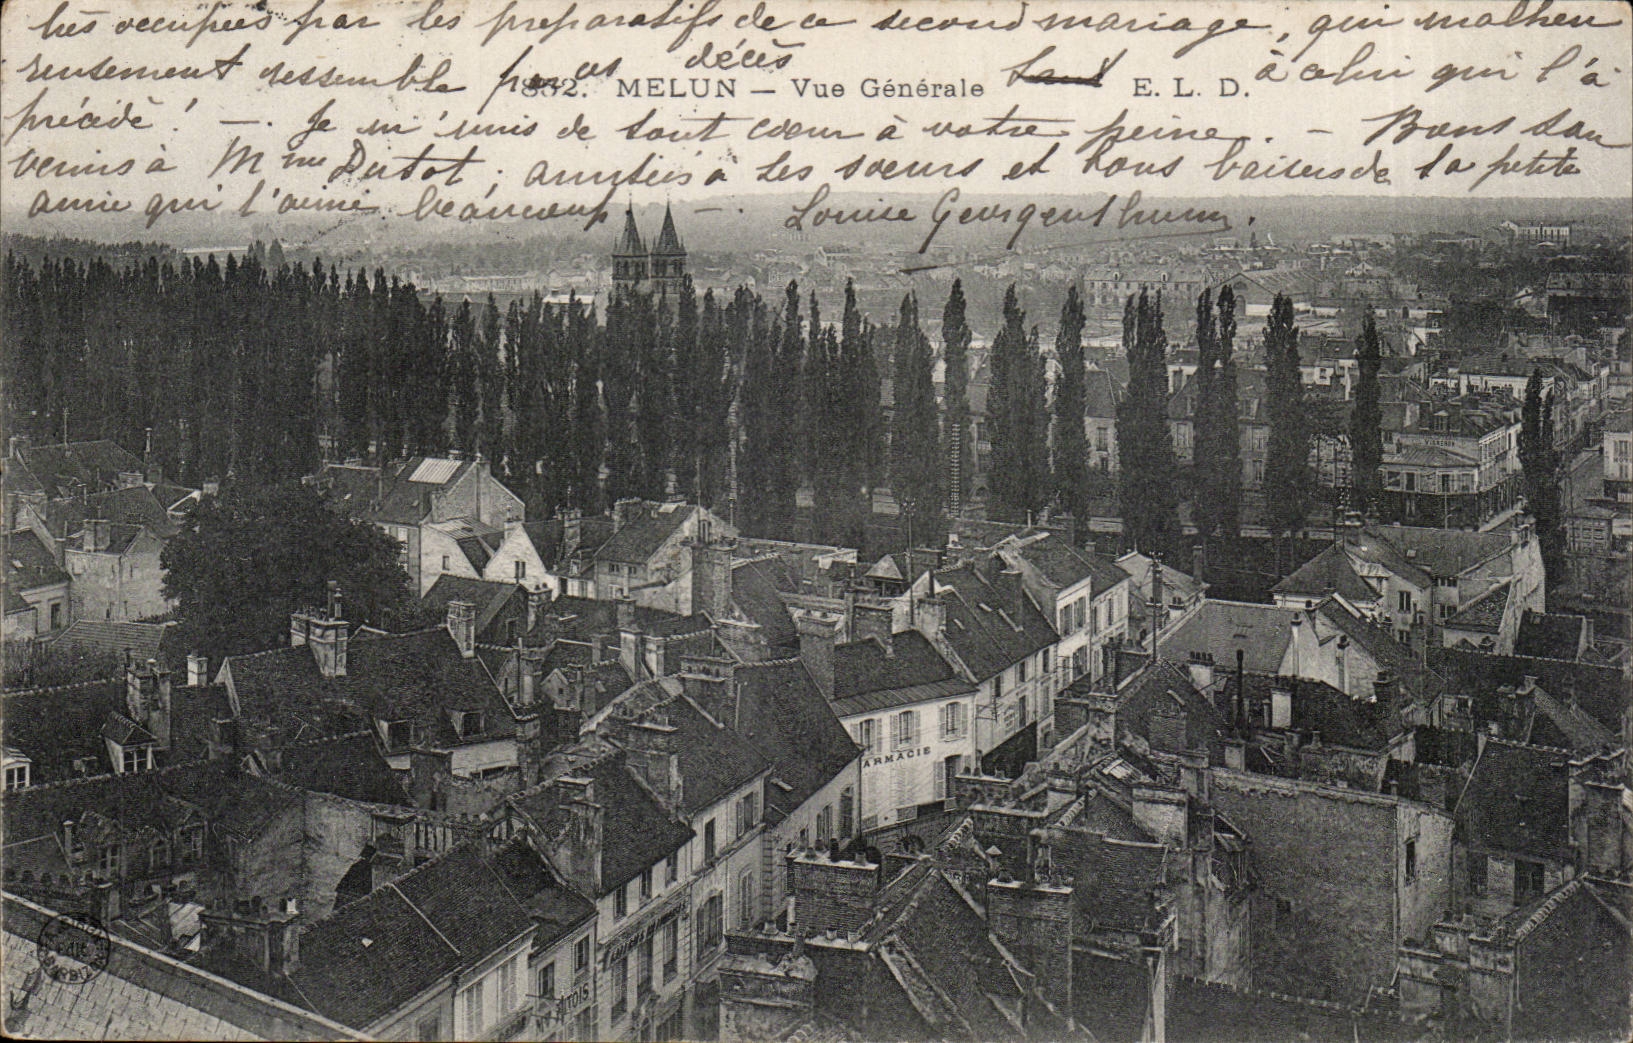 très occupées par les préparatifs de ce second mariage, qui malheu
reusement ressemble pas décès à celui qui l'a
832. MELUN — Vue Générale E. L. D.
précédé! —. Je m'unis de tout cœur à votre peine. — Bons sou
venirs à Mme Dutot; amitiés à ses sœurs et bons baisers de la petite
amie qui l'aime beaucoup —. Louise Georgenthum.
VIGNERON
ARMACIE